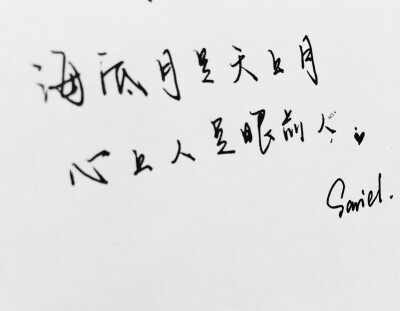 海底月是天上月
心上人是眼前人
Sariel.